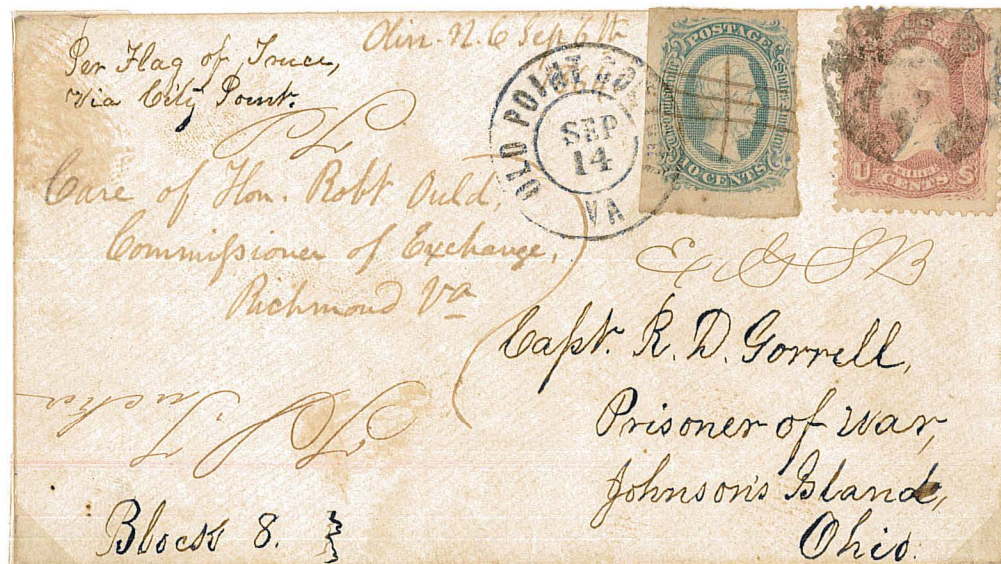 Olin. N. C Sep 6th
Per Flag of Truce,
Via City Point.
OLD POINT CO
SEP
14
VA
POSTAGE
10 CENTS
U S
CENTS
Care of Hon. Robt Ould,
Commissioner of Exchange,
Richmond Va
Capt. R. D. Gorrell,
Prisoner of War,
Johnson's Island,
Ohio.
Block 8.